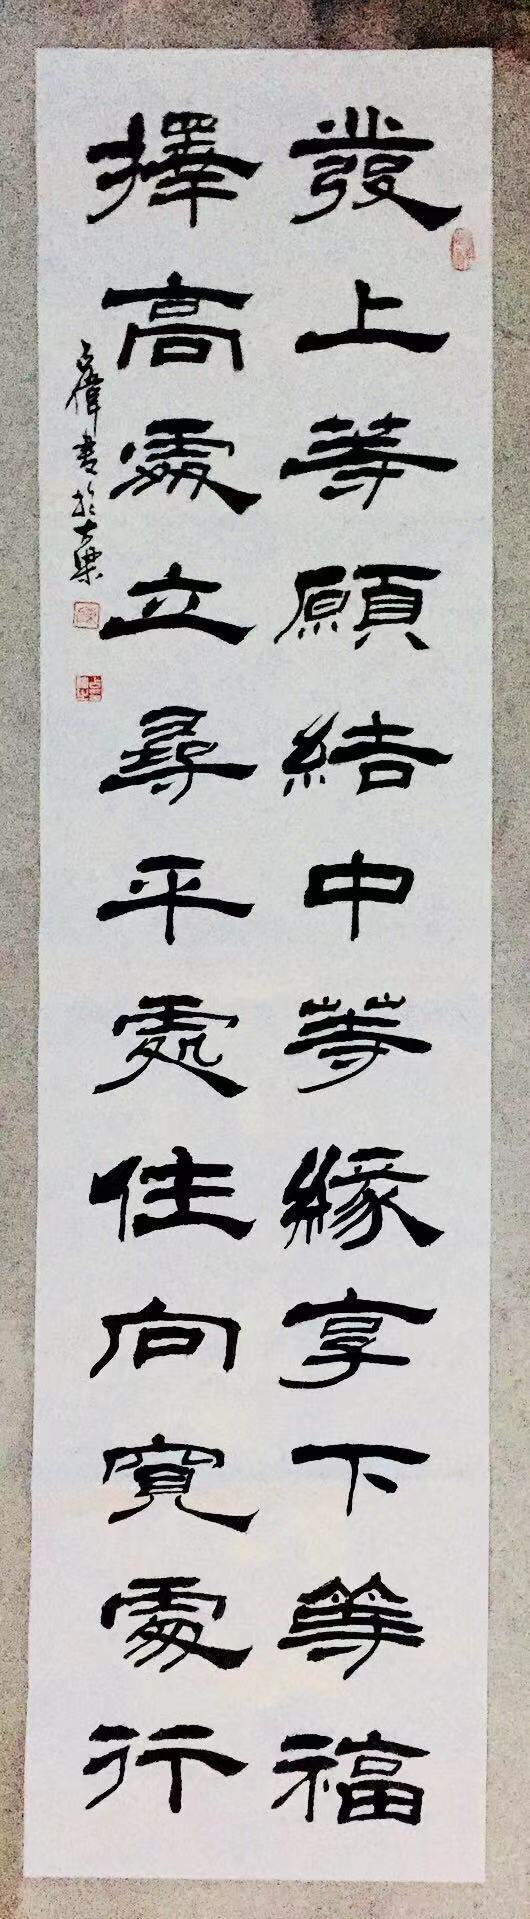 發上等願結中等緣享下等福
擇高處立尋平處住向寬處行
偉書於大梁